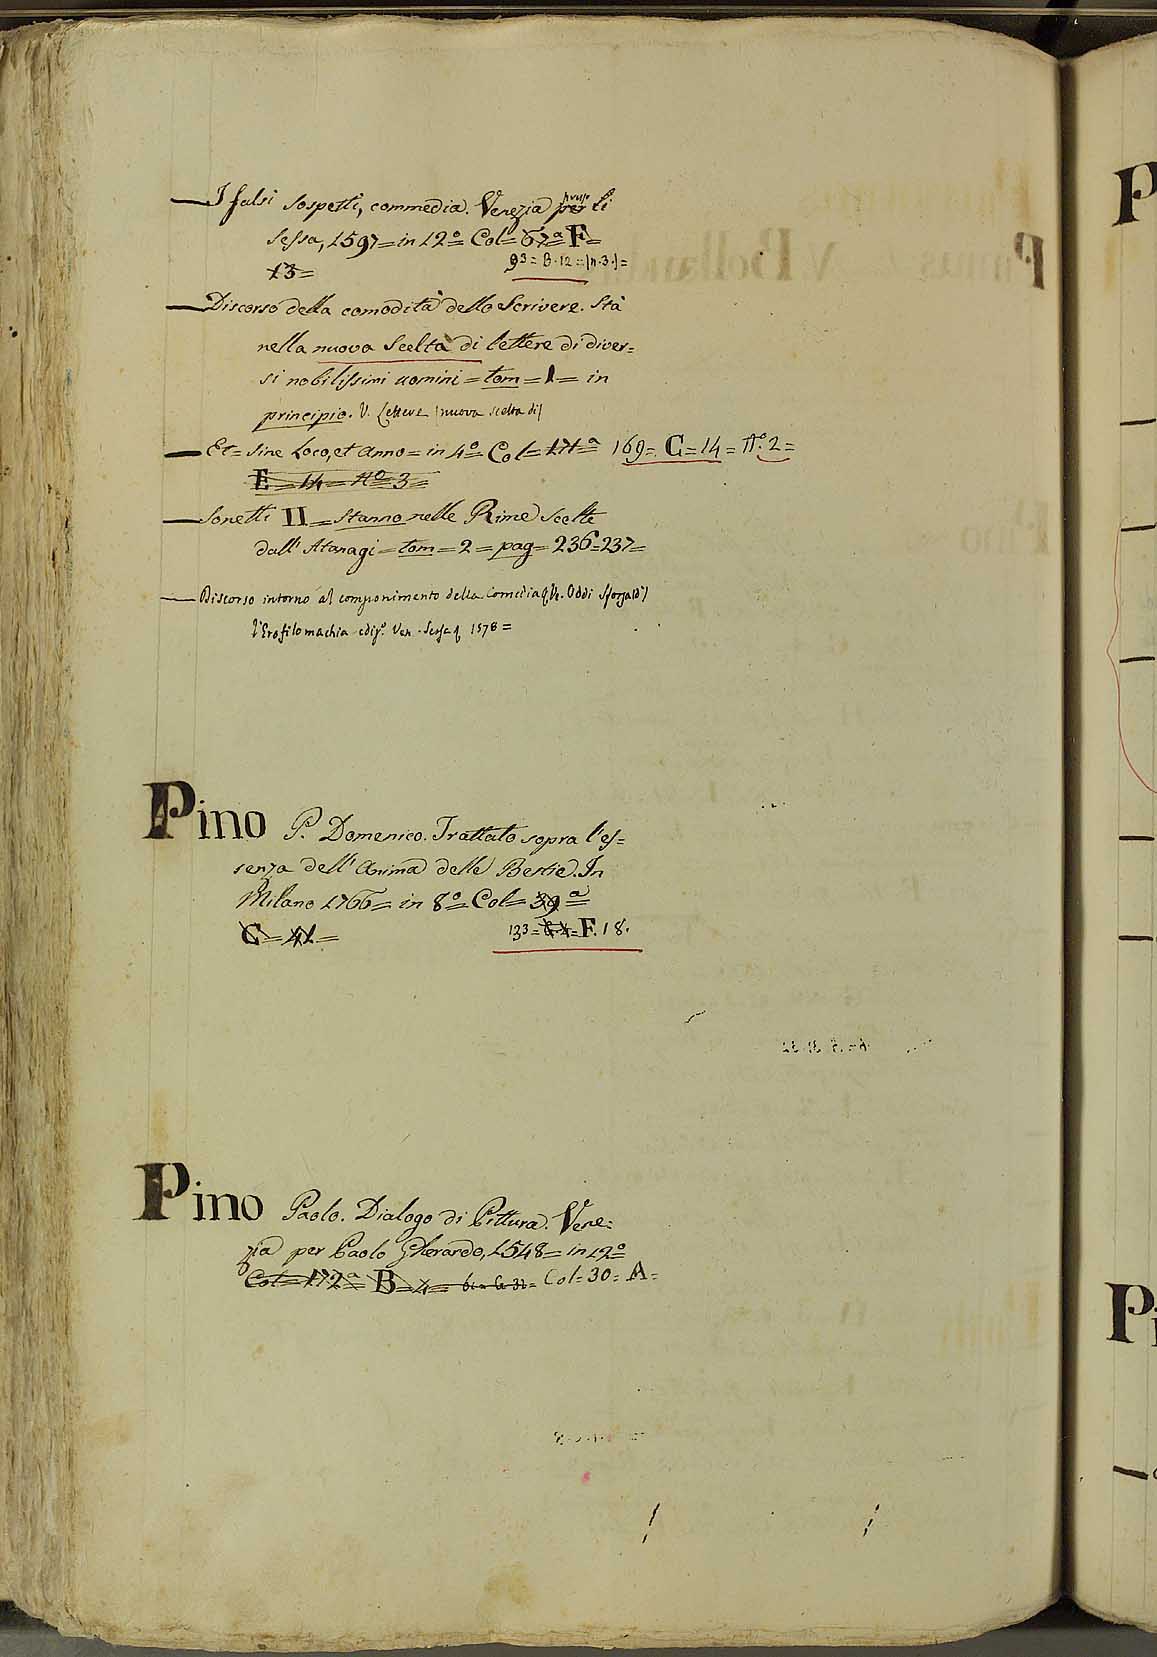 — I falsi Sospetti, commedia. Venezia per li
Sessa, 1597= in 12º= Col= 67ª F=
13=
93= B.12=(n.3.)=
— Discorso della comodità dello Scrivere. Stà
nella nuova Scelta di lettere di diver=
si nobilissimi uomini= tom= 1= in
principio. V. Lettere (nuova scelta di)
— Et= sine Loco, et anno= in 4º= Col= 171ª 169= C= 14= Nº. 2=
E= 14= Nº 3=
— Sonetti II= stanno nelle Rime scelte
dall' Atanagi= tom= 2= pag= 236=237=
— Discorso intorno al componimento della Comedia q V. Oddi Sforza (d')
l'Erofilomachia ediz.e Ven. Sessa 1578=
Pino P. Domenico. Trattato sopra l'es=
senza dell' Anima delle Bestie. In
Milano 1766= in 8º= Col= 39ª=
C= 41=
133= F. 18.
Pino Paolo. Dialogo di Pittura. Vene=
zia per Paolo Gherardo, 1548= in 12º=
Col= 172ª= B= 4= Col= 30= A=
P
Pi